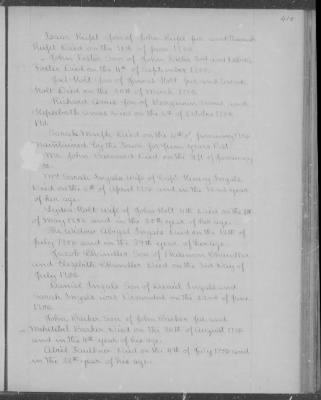 Isaac Kitfel Son of John Kitfel jun and Hannah
Kitfel Died on the 21st of June 1750.
John Foster Son of John Foster 3rd and Lebiah
Foster Died on the 11th of September 1750.
Joel Holt Son of Jonas Holt jun and
Holt Died on the 30th of March 1750.
Richard Ames Son of Benjamin Ames and
Hepzebeth Ames Died on the 5th of October 1750
Sarah Died on the of January 1750
Maintained by the Town for years Past.
Mr. John Barnard Died on the of January
Mrs Sarah Ingals wife of Capt. Henry Ingals
Died on the 6th of April 1750 and in the year
of her age.
Lydia Holt wife of John Holt 4th Died on the
of May 1750 and in the 30th year of her age.
The Widow Abigal Ingals Died on the 12th of
July 1750 and in the 39th year of her age.
Jacob Chandler Son of Philemon Chandler
and Elizabeth Chandler Died on the 3rd Day of
July 1750.
Daniel Ingals Son of Daniel Ingals and
Sarah Ingals was Drowned on the 22nd of June
1750.
John Barker Son of John Barker jun and
Mehitebel Barker Died on the 30th of August 1750
and in the 4th year of his age.
Abiel Faulkner Died on the 9th of July 1750 and
in the year of his age.